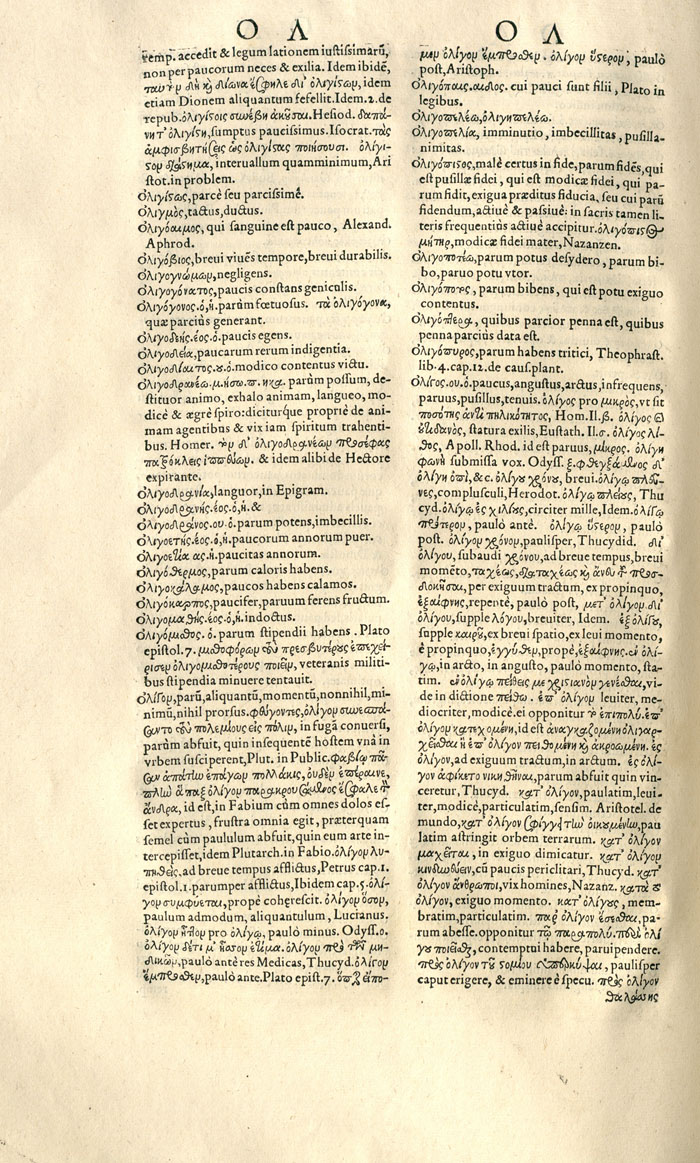 Ο Λ
remp. accedit & legum lationem iustissimarū,
non per paucorum neces & exilia. Idem ibidē,
δι᾽ ὀλίγιστον, idem
etiam Dionem aliquantum fefellit. Idem. 2. de
repub. ὀλιγίστοις συνέβη Hesiod. δαπά-
νη τ᾽ ὀλιγίστη, sumptus paucissimus. Isocrat. τὰς
ἀμφισβητήσεις ὡς ὀλιγίστας ποιήσουσι. ὀλίγι-
στον διάστημα, interuallum quamminimum, Ari
stot. in problem.
Ὀλιγίστως, parcè seu parcissimè.
Ὀλιγμὸς, tactus, ductus.
Ὀλιγόαιμος, qui sanguine est pauco, Alexand.
Aphrod.
Ὀλιγόβιος, breui viuēs tempore, breui durabilis.
Ὀλιγογνώμων, negligens.
Ὀλιγογόνατος, paucis constans geniculis.
Ὀλιγόγονος. ὁ, ἡ. parùm fœtuosus. τὰ ὀλιγόγονα,
quæ parciùs generant.
Ὀλιγοδεής. έος. ὁ. paucis egens.
Ὀλιγοδεία, paucarum rerum indigentia.
Ὀλιγοδίαιτος. ου. ὁ. modico contentus victu.
Ὀλιγοδρανέω. μ. ήσω. π. ηκα. parùm possum, de-
stituor animo, exhalo animam, langueo, mo-
dicè & ægrè spiro: dicitúrque propriè de ani-
mam agentibus & vix iam spiritum trahenti-
bus. Homer. τὸν δ᾽ ὀλιγοδρανέων προσέφης
πατρόκλεις ἱππεῦ. & idem alibi de Hectore
expirante.
Ὀλιγοδρανία, languor, in Epigram.
Ὀλιγοδρανής. έος. ὁ, ἡ. &
Ὀλιγόδρανος. ου. ὁ. parum potens, imbecillis.
Ὀλιγοετής. έος. ὁ, ἡ. paucorum annorum puer.
Ὀλιγοετία ας. ἡ. paucitas annorum.
Ὀλιγόθερμος, parum caloris habens.
Ὀλιγοκάλαμος, paucos habens calamos.
Ὀλιγόκαρπος, paucifer, paruum ferens fructum.
Ὀλιγομαθής. έος. ὁ, ἡ. indoctus.
Ὀλιγόμισθος. ὁ. parum stipendii habens. Plato
epistol. 7. μισθοφόρων τοὺς πρεσβυτέρους ἐπεχεί-
ρησεν ὀλιγομισθοτέρους ποιεῖν, veteranis militi-
bus stipendia minuere tentauit.
Ὀλίγον, parū, aliquantū, momentū, nonnihil, mi-
nimū, nihil prorsus. φθίγοντες, ὀλίγον
τοὺς πολεμίους εἰς πόλιν, in fugā conuersi,
parùm abfuit, quin insequentē hostem vnà in
vrbem susciperent, Plut. in Public. φαβίῳ πᾶ-
σαν ἀπάτην ἐπάγων πολλάκις, οὐδὲν ἐπέραινε,
πλὴν ἅπαξ ὀλίγον παρακρουσάμενος ἔσφαλε τὸν
ἄνδρα, id est, in Fabium cùm omnes dolos es-
set expertus, frustra omnia egit, præterquam
semel cùm paululum abfuit, quin eum arte in-
tercepisset, idem Plutarch. in Fabio. ὀλίγον λυ-
πηθεὶς. ad breue tempus afflictus, Petrus cap. 1.
epistol. 1. parumper afflictus, Ibidem cap. 5. ὀλί-
γον συμφύεται, propè coherescit. ὀλίγον ὅσον,
paulum admodum, aliquantulum, Lucianus.
ὀλίγον ἧττον pro ὀλίγῳ, paulò minus. Odyss. ο.
ὀλίγον δέ τι μ᾽ ἧσσον ἐτίμα. ὀλίγον πρὸ τῶν μη-
δικῶν, paulò ante res Medicas, Thucyd. ὀλίγον
ἔμπροσθεν, paulò ante. Plato epist. 7.
Ο Λ
μεν ὀλίγον ἔμπροσθεν. ὀλίγον ὕστερον, paulò
post, Aristoph.
Ὀλιγόπαις. αιδος. cui pauci sunt filii, Plato in
legibus.
Ὀλιγοπελέω, ὀλιγηπελέω.
Ὀλιγοπελία, imminutio, imbecillitas, pusilla-
nimitas.
Ὀλιγόπιστος, malè certus in fide, parum fidēs, qui
est pusillæ fidei, qui est modicæ fidei, qui pa-
rum fidit, exigua præditus fiducia, seu cui parū
fidendum, actiuè & passiuè: in sacris tamen li-
teris frequentiùs actiuè accipitur. ὀλιγόπιστος
μήτηρ, modicæ fidei mater, Nazanzen.
Ὀλιγοποτέω, parum potus desydero, parum bi-
bo, paruo potu vtor.
Ὀλιγοπότης, parum bibens, qui est potu exiguo
contentus.
Ὀλιγόπτερα, quibus parcior penna est, quibus
penna parciùs data est.
Ὀλιγόπυρος, parum habens tritici, Theophrast.
lib. 4. cap. 12. de caus. plant.
Ὀλίγος. ου. ὁ. paucus, angustus, arctus, infrequens,
paruus, pusillus, tenuis. ὀλίγος pro μικρὸς, vt sit
ποσότης ἀντὶ πηλικότητος, Hom. Il. β. ὀλίγος
οὐτιδανὸς, statura exilis, Eustath. Il. σ. ὀλίγος λί-
θος, Apoll. Rhod. id est paruus, μικρος. ὀλίγη
φωνὴ submissa vox. Odyss. ξ. φθεγξάμενος δι᾽
ὀλίγη ὀπὶ, &c. ὀλίγου χρόνου, breui. ὀλίγῳ πλεῦ-
νες, complusculi, Herodot. ὀλίγῳ πλείους, Thu
cyd. ὀλίγῳ ἐς χιλίους, circiter mille, Idem. ὀλίγῳ
πρότερον, paulò antè. ὀλίγῳ ὕστερον, paulò
post. ὀλίγον χρόνον, paulisper, Thucydid. δι᾽
ὀλίγου, subaudi χρόνου, ad breue tempus, breui
momēto, ταχέως, διαταχέως
per exiguum tractum, ex propinquo,
ἐξαίφνης, repentè, paulò post, μετ᾽ ὀλίγον δι᾽
ὀλίγου, supple λόγου, breuiter, Idem. ἐξ ὀλίγου,
supple καιροῦ, ex breui spatio, ex leui momento,
è propinquo, ἐγγύθεν, propè, ἐξαίφνης. ἐν ὀλί-
γῳ, in arcto, in angusto, paulò momento, sta-
tim. ἐν ὀλίγῳ πείθεις με χριστιανὸν γενέσθαι, vi-
de in dictione πείθω. ἐπ᾽ ὀλίγον leuiter, me-
diocriter, modicè. ei opponitur τὸ ἐπιπολύ. ἐπ᾽
ὀλίγον κατεχομένη, id est ἀναγκαζομένη ὀλιγαρ-
χεῖσθαι ἢ ἐπ᾽ ὀλίγον πειθομένη κ̀ ἀκροωμένη. ἐς
ὀλίγον, ad exiguum tractum, in arctum. ἐς ὀλί-
γον ἀφίκετο νικηθῆναι, parum abfuit quin vin-
ceretur, Thucyd. κατ᾽ ὀλίγον, paulatim, leui-
ter, modicè, particulatim, sensim. Aristotel. de
mundo, κατ᾽ ὀλίγον σφίγγει τὴν οἰκουμένην, pau
latim astringit orbem terrarum. κατ᾽ ὀλίγον
μαχεῖται, in exiguo dimicatur. κατ᾽ ὀλίγον
κινδυνεύειν, cū paucis periclitari, Thucyd. κατ᾽
ὀλίγον ἄνθρωποι, vix homines, Nazanz. κατὰ
ὀλίγον, exiguo momento. κατ᾽ ὀλίγους, mem-
bratim, particulatim. παρ᾽ ὀλίγον ἔσεσθαι, pa-
rum abesse. opponitur τῷ παραπολύ. παρ᾽ ὀλί
γου ποιεῖσθαι, contemptui habere, paruipendere.
πρὸς ὀλίγον τοῦ στομίου paulisper
caput erigere, & eminere è specu. πρὸς ὀλίγον
θαλφθεὶς